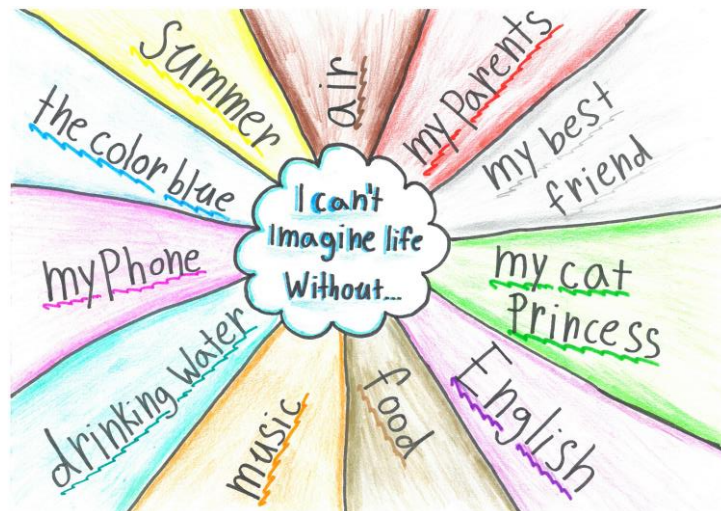 I can't
Imagine life
Without...
air
my Parents
my best
friend
my cat
Princess
English
food
music
drinking water
my Phone
the color blue
Summer